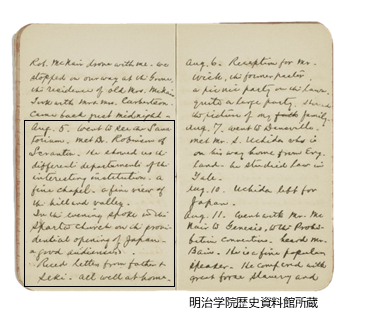 Rob. McNair drove with me. We
stopped on our way at the Grove,
the residence of old Mrs. McNair
Took with Mrs. Mrs. Carbertson.
Came back great midnight.
Aug. 5. Went to see the Sana
torium. Met B. Robinson of
Scranton. He showed us the
different departments of the
interesting institution. a
fine chapel. a fine view of
the hill and valley.
In the evening spoke in the
Sparta church on the provi-
dential opening of Japan.
a good audience.
Rec'd letters from father &
Seki. All well at home.
Aug. 6. Reception for Mr.
Wick, the former pastor.
a picnic party on the lawn.
quite a large party.
the pictures of my family.
Aug. 7. Went to Dansville.
Met Mr. S. Uchida who is
on his way home from Eng-
land. he studied law in
Yale.
Aug. 10. Uchida left for
Japan.
Aug. 11. Went with Mr. Mc
Nair to Geneseo, to the Prohi-
bition convention. heard Mr.
Bain. He is a fine popular
speaker. He compared with
great force Slavery and
明治学院歴史資料館所蔵